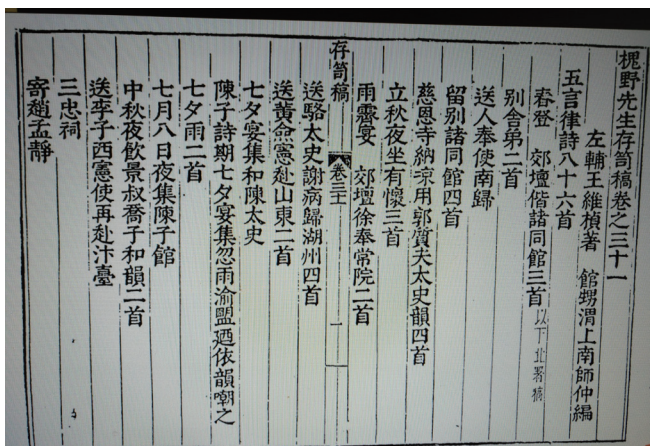 槐野先生存笥稿卷之三十一
左輔王維楨著 館甥渭上南師仲編
五言律詩八十六首
春登 郊壇偕諸同館三首以下北署稿
別舍弟二首
送人奉使南歸
留別諸同館四首
慈恩寺納涼用郭質夫太史韻四首
立秋夜坐有懷三首
雨霽宴 郊壇徐奉常院二首
存笥稿 卷三十一 一
送駱太史謝病歸湖州四首
送黃僉憲赴山東二首
七夕宴集和陳太史
陳子詩期七夕宴集忽雨渝盟廼依韻嘲之
七夕雨二首
七月八日夜集陳子館
中秋夜飲景叔喬子和韻二首
送李子西憲使再赴汴臺
三忠祠
寄趙孟靜